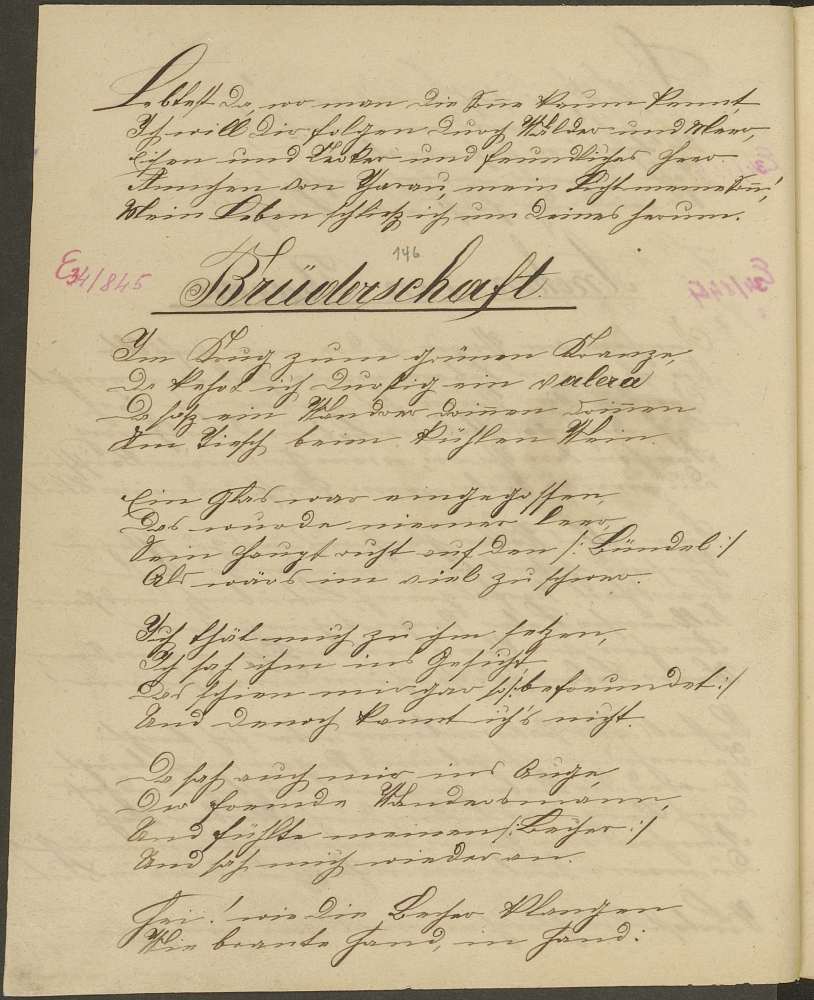 Lebtest Da, wo man die Soñe kaum kennt,
Ich will Dir folgen durch Wälder und Meer,
Eisen und Kerker und feundliches Heer
Ännchen von Tharau, mein Licht meine Soñ!
Mein Leben schließ ich um Deines herum.
146
E34/845
Brüderschaft.
Im Krug zum grünen Kranze,
Da kehrt ich durstig ein valera
Da saß ein Wandrer drinnen drinnen
Am Tiesch beim kühlen Wein.
Ein Glas war eingegossen,
Das wurde niemer leer,
Sein Haupt ruht auf dem /: Bündel :/
Als wärs im viel zu schwer.
Ich thät mich zu ihm setzen,
Ich sah ihm ins Gesicht,
Das schien mir gar so /: befreundet :/
Und denoch kannt ich's nicht.
Da sah auch mir ins Auge
Der fremde Wandersmann,
Und füllte meinen /: Becher :/
Und sah mich wieder an.
Hei! wie die Becher klangen
Wie brante Hand, in Hand: